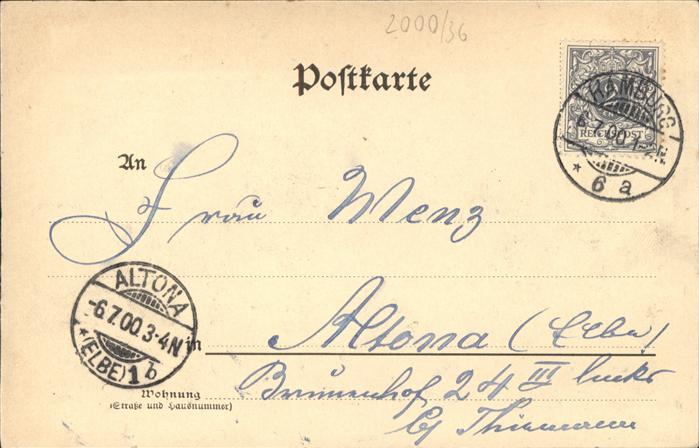 2000/36
Postkarte
REICHSPOST
HAMBURG 1
6.7.00. 1-2N
* 6 a
An
Frau Wenz
ALTONA
-6.7.00.3-4N
* (ELBE) 1 b
in Altona (Elbe)
Wohnung
(Straße und Hausnummer)
Brunnenhof 24 III links
bei Thiemann